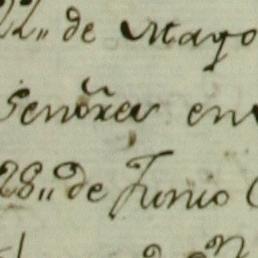 22,, de Mayo
Señores en
28,, de Junio